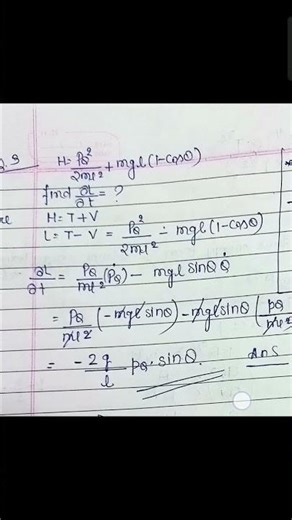 Q.9 H = Pθ²/2ml² + mgl (1-cosθ)
find ∂L/∂t = ?
H = T+V
L = T-V = Pθ²/2ml² - mgl (1-cosθ)
∂L/∂t = Pθ/ml² (Ṗθ) - mgl sinθ θ̇
= Pθ/ml² (-mgl sinθ) - mgl sinθ (Pθ/ml²
= -2g/l Pθ · sinθ. Ans